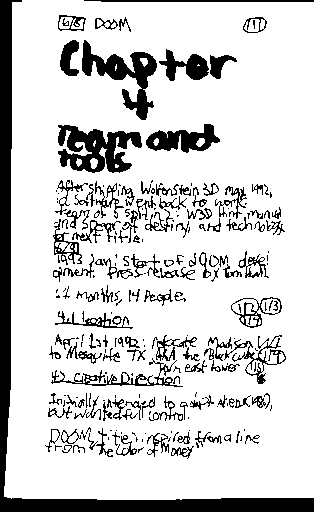 6/8 DOOM 111
Chapter
4
Team and
tools
After shipping Wolfenstein 3D may 1992,
id Software went back to work.
team of 5 split in 2: W3D hint manual
and Spear of destiny, and technology
for next title.
1993 Jan: start of DOOM devel
opment. Press release by Tom Hall.
11 months, 14 People.
112 113
114
4.1 Location
April 1st 1992: relocate Madison WI
to Mesquite TX. And the "Black cube"
Town east tower
4.2 Creative Direction
Initially intended to adapt Aliens (1986),
but wanted full control.
DOOM title: inspired from a line
from "the Color of Money"